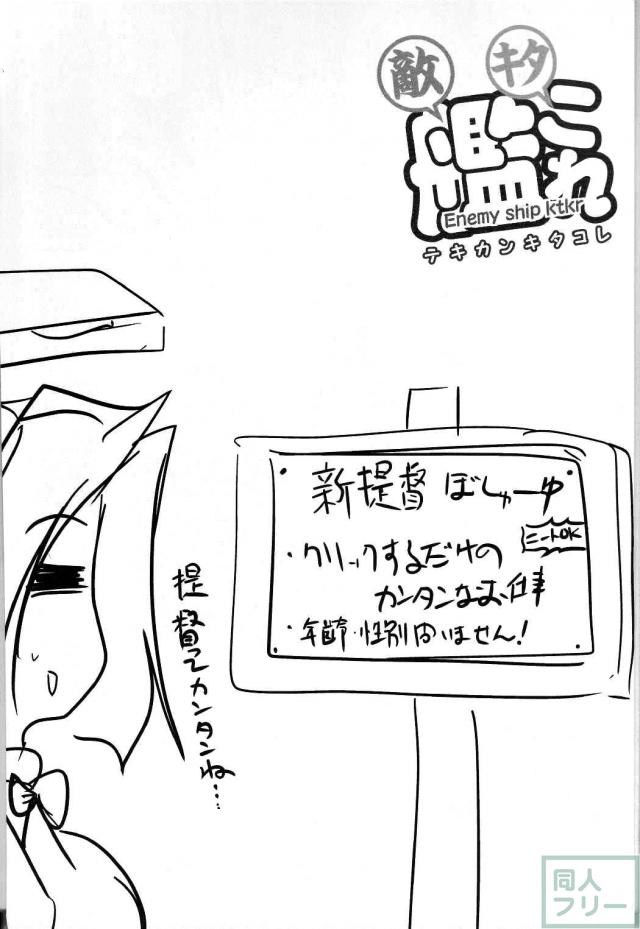 敵
キタ
艦これ
Enemy ship ktkr
テキカンキタコレ
新提督ぼしゅーゆ
ニートOK
・クリックするだけの
カンタンなお仕事
・年齢・性別問いません!
提督てカンタンね…
同人
フリー